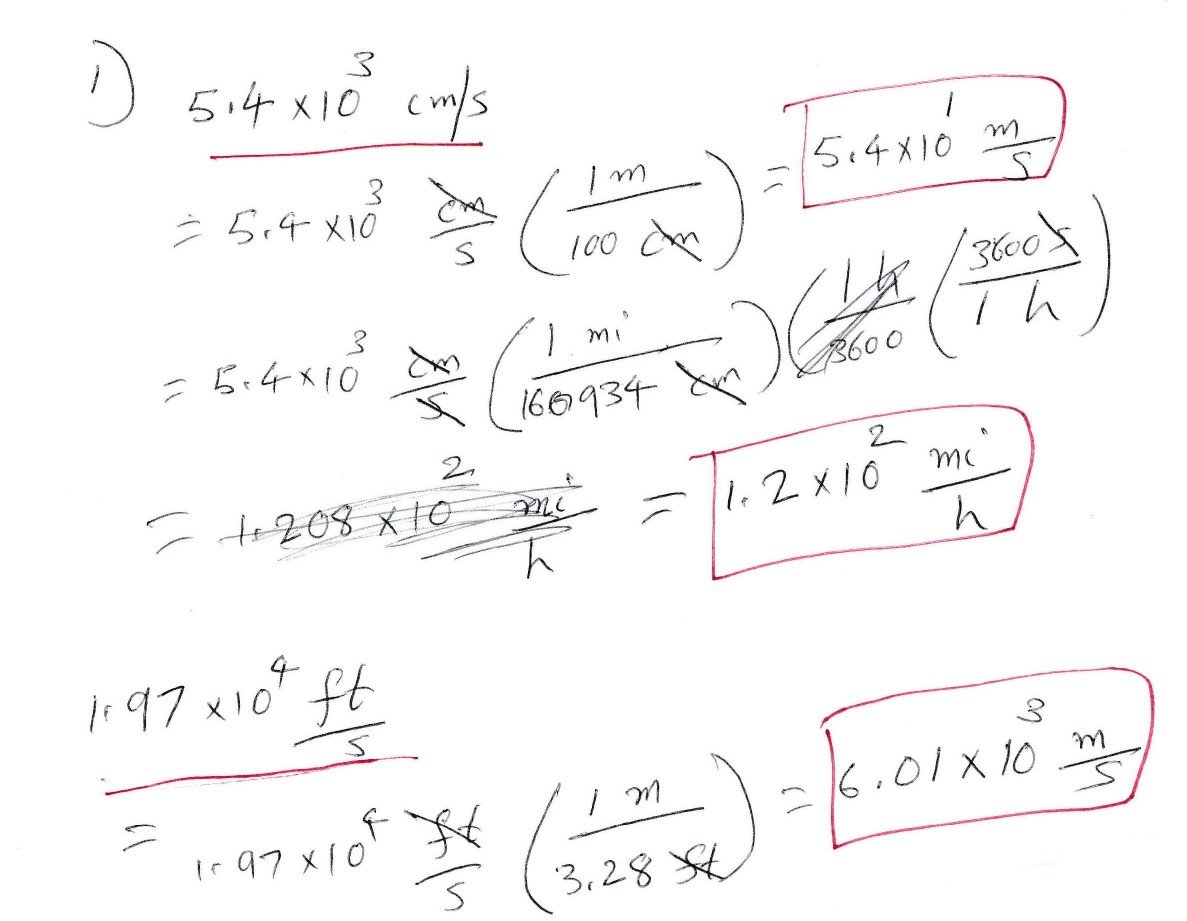 1) 5.4 × 10³ cm/s
= 5.4 × 10³ cm/s (1 m / 100 cm) = 5.4 × 10¹ m/s
= 5.4 × 10³ cm/s (1 mi / 160934 cm) (1 h / 3600 (3600 s / 1 h)
= 1.208 × 10² mi/h = 1.2 × 10² mi/h
1.97 × 10⁴ ft/s
= 1.97 × 10⁴ ft/s (1 m / 3.28 ft) = 6.01 × 10³ m/s